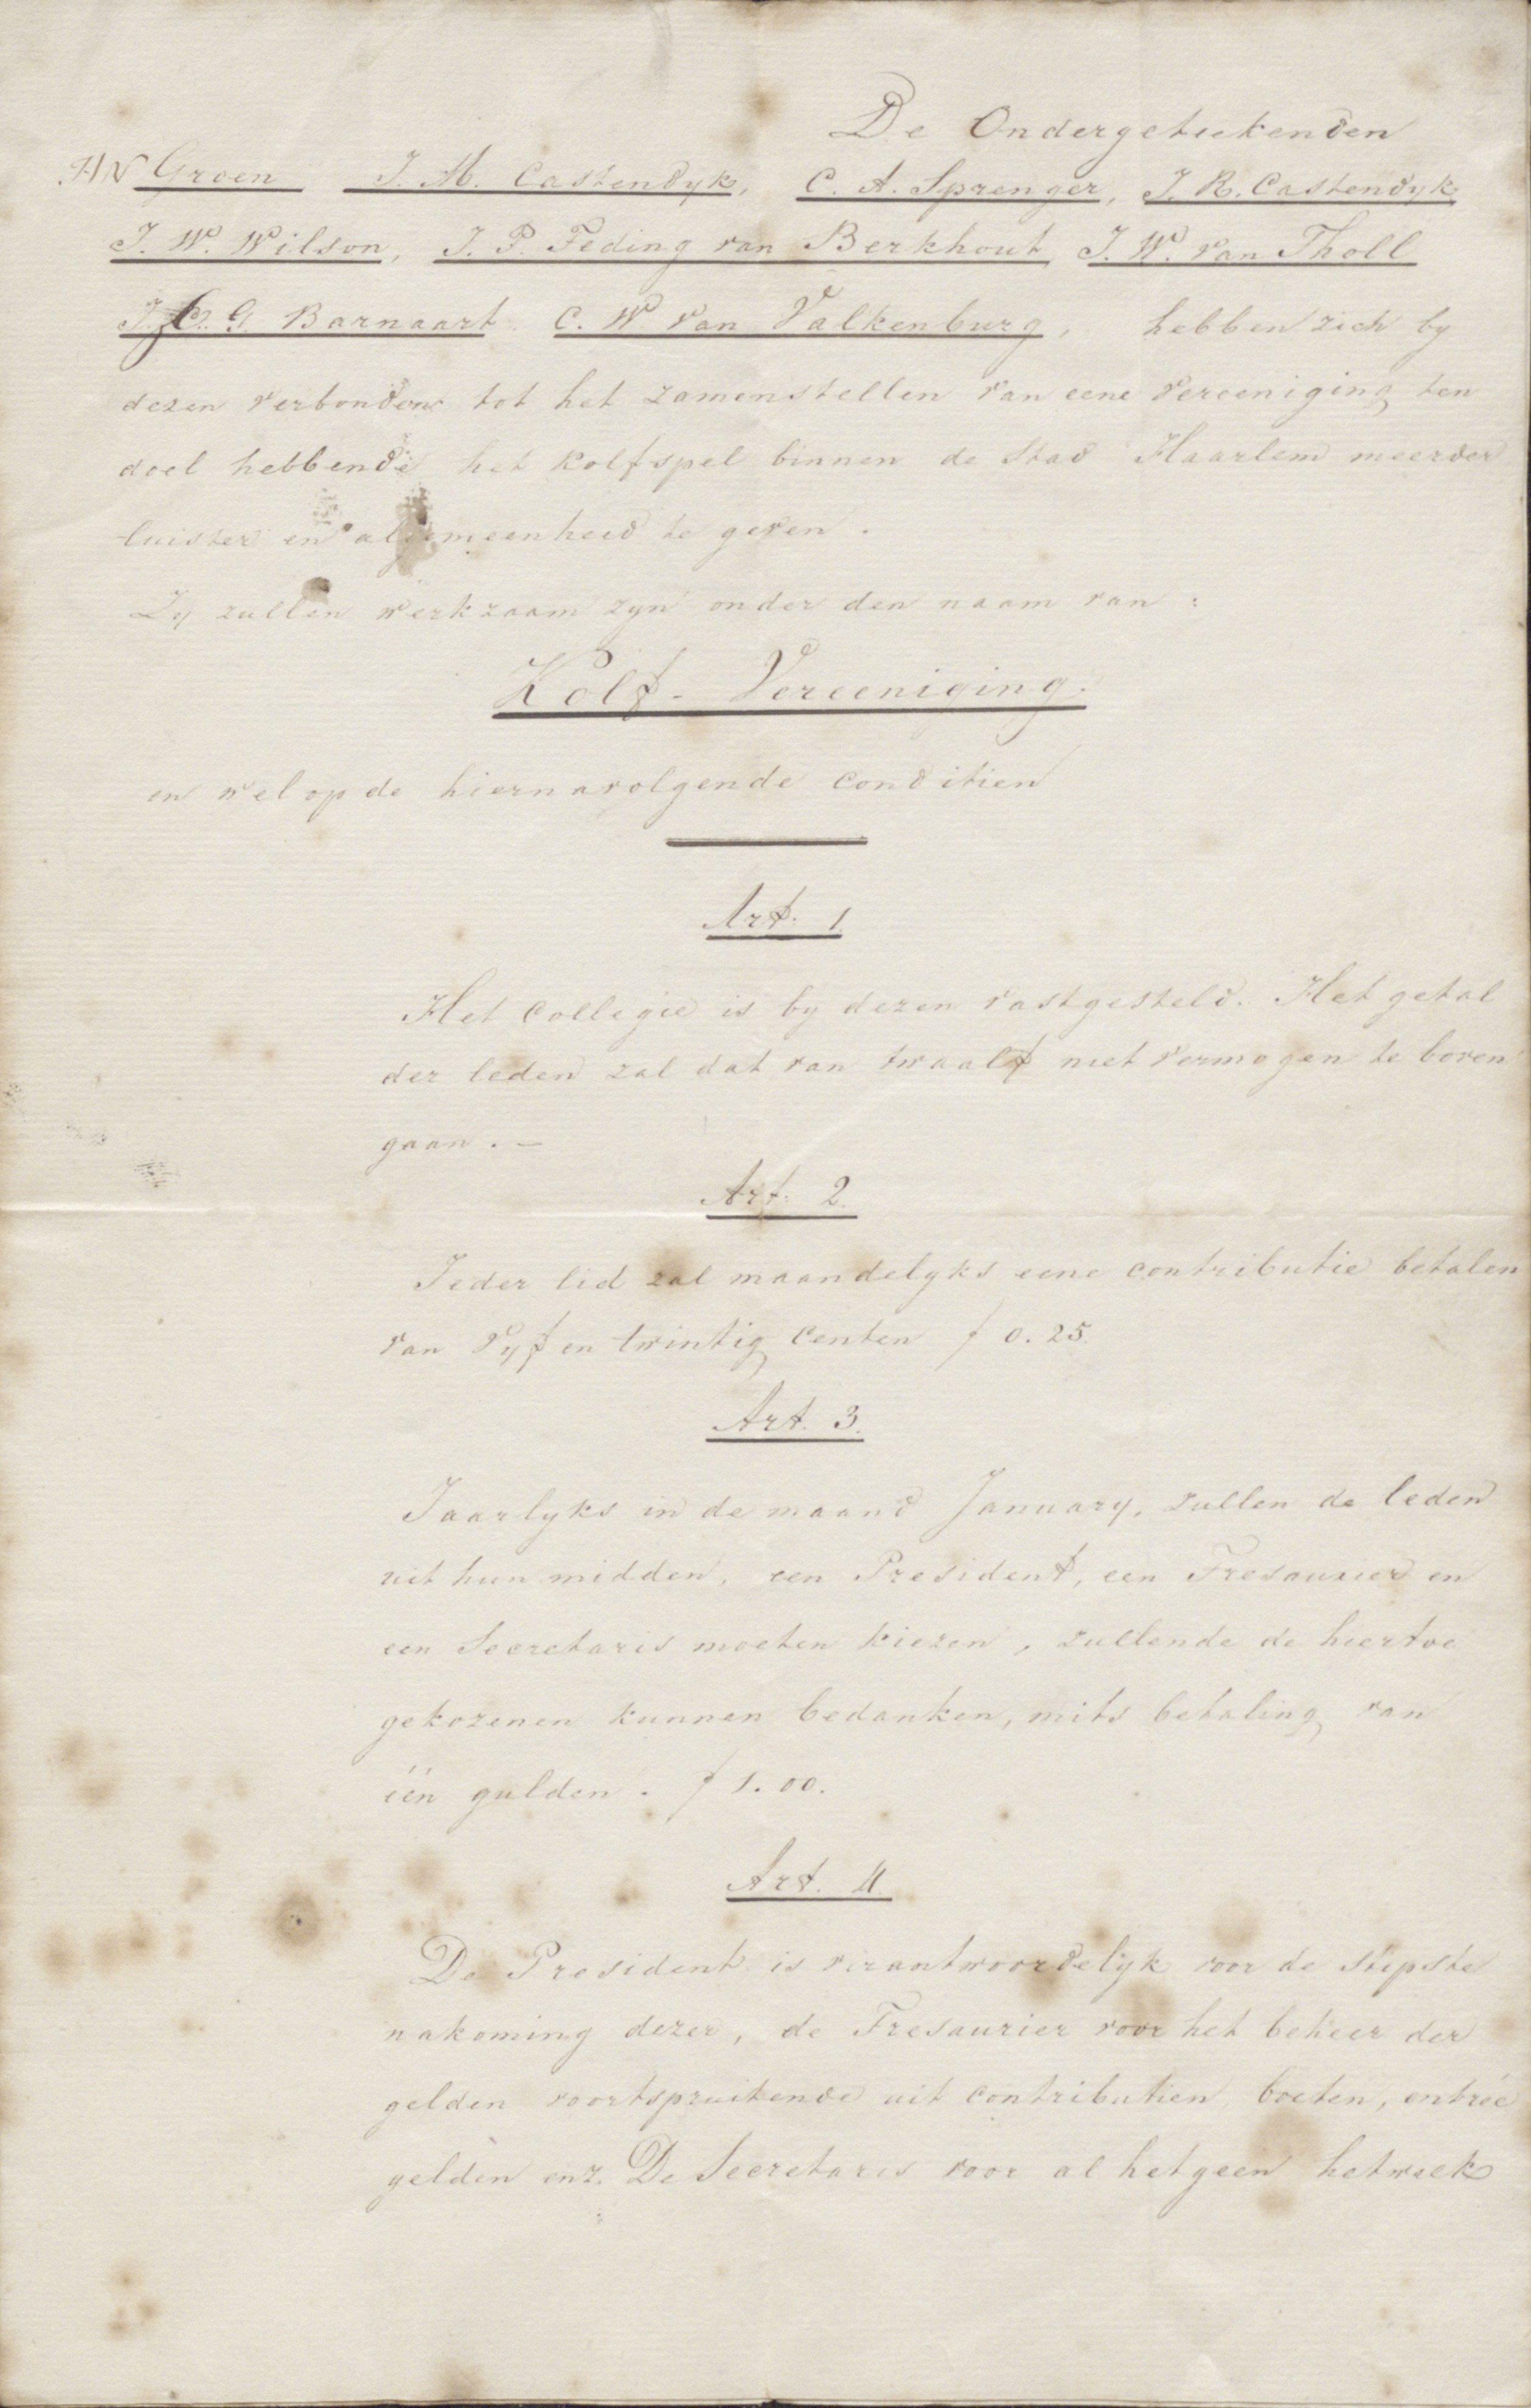 De Ondergeteekenden
HN Groen J. M. Castendyk, C. A. Sprenger, J. R. Castendyk
J. W. Wilson, J. P. Teding van Berkhout, J. W. van Tholl
G Barnaart. C. W van Valkenburg, hebben zich by
dezen verbonden tot het zamenstellen van eene Vereeniging ten
doel hebbende het kolfspel binnen de Stad Haarlem meerder
luister en algemeenheid te geven.
Zy zullen werkzaam zyn onder den naam van:
Kolf-Vereeniging.
en wel op de hiernavolgende Conditien
Art. 1.
Het Collegie is by dezen vastgesteld. Het getal
der leden zal dat van twaalf niet vermogen te boven
gaan. —
Art. 2.
Ieder lid zal maandelyks eene contributie betalen
van vyf en twintig Centen f 0.25.
Art. 3.
Jaarlyks in de maand January, zullen de leden
uit hun midden, een President, een Tresaurier en
een Secretaris moeten kiezen, zullende de hiertoe
gekozenen kunnen bedanken, mits betaling van
één gulden. f 1.00.
Art. 4.
De President is verantwoordelyk voor de stipste
nakoming dezer, de Tresaurier voor het beheer der
gelden voortspruitende uit contributien, boeten, entrée
gelden enz. De Secretaris voor al hetgeen hetwelk